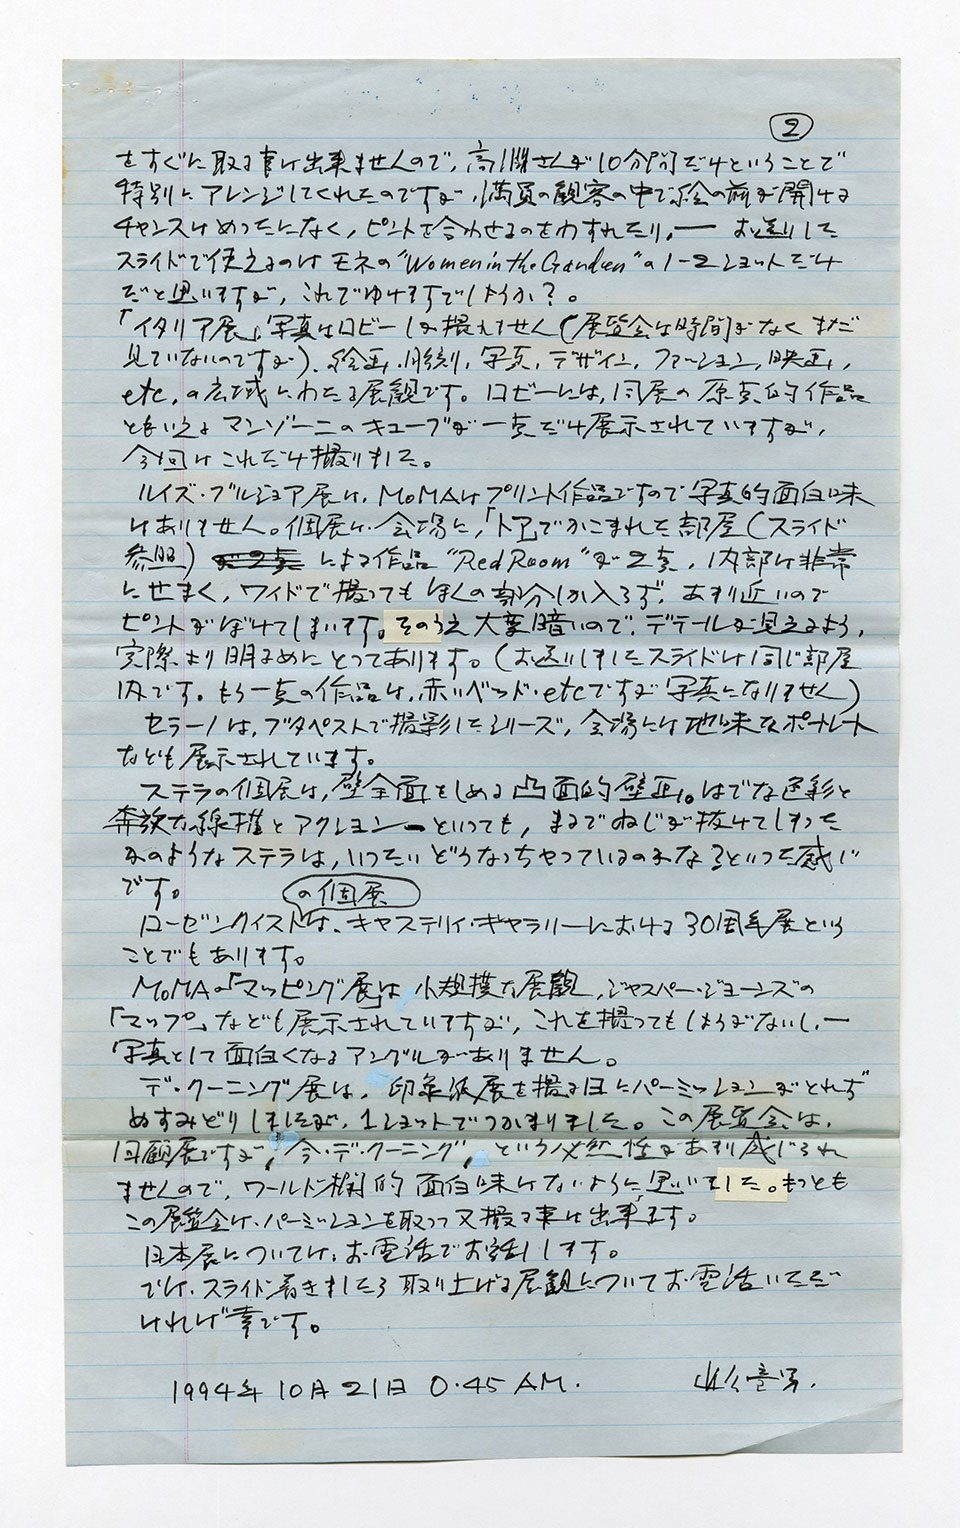 ②
をすぐに取る事は出来ませんので、高 さんが10分間だけということで
特別にアレンジしてくれたのですが、満員の観客の中で絵の前が開ける
チャンスはめったになく、ピントを合わせるのをわすれたり、— お送りした
スライドで使えるのはモネの"Women in the Garden"の1-2ショットだけ
だと思いますが、これでゆけますでしょうか?。
「イタリア展」写真はロビーしか撮れません(展覧会は時間がなくまだ
見ていないのですが)、絵画、彫刻、写真、デザイン、ファッション、映画、
etc.の広域にわたる展観です。ロビーには、同展の原点的作品
ともいえるマンゾーニのキューブが一点だけ展示されていますが、
今回はこれだけ撮りました。
ルイズ・ブルジョア展は、MoMAはプリント作品ですので写真的面白味
はありません。個展は、会場に、「ドア」でかこまれた部屋(スライド
参照) による作品"Red Room"が2点、内部は非常
にせまく、ワイドで撮ってもほんの部分しか入らず、あまり近いので
ピントがぼけてしまいます。そのうえ大変暗いので、デテールが見えるよう、
実際より明るめにとってあります。(お送りしましたスライドは同じ部屋
内です。もう一点の作品は、赤いベッド・etcですが写真になりません)
セラーノは、ブタペストで撮影したシリーズ、会場には地味なポートレート
なども展示されています。
ステラの個展は、壁全面をしめる凸面的壁画。はでな色彩と
奔放な線描とアクションーといっても、まるでねじが抜けてしまった
かのようなステラは、いったいどうなっちゃっているのかなるといった感じ
です。
の個展
ローゼンクイストは、キャステリィ・ギャラリーにおける30周年展という
ことでもあります。
MoMAの「マッピング展」は小規模な展観、ジャスパー・ジョーンズの
「マップ」なども展示されていますが、これを撮ってもしょうがないし、—
写真として面白くなるアングルがありません。
デ・クーニング展は、印象派展を撮る日にパーミッションがとれず
ぬすみどりしましたが、1ショットでつかまりました。この展覧会は、
回顧展ですが、今・デ・クーニング、という必然性があまり感じられ
ませんので、ワールド欄的面白味はないように思いました。もっとも
この展覧会は、パーミッションを取って又撮る事は出来ます。
日本展については、お電話でお話します。
では、スライド着きましたら取り上げる展観についてお電話いただ
ければ幸です。
1994年10月21日 0.45 AM.